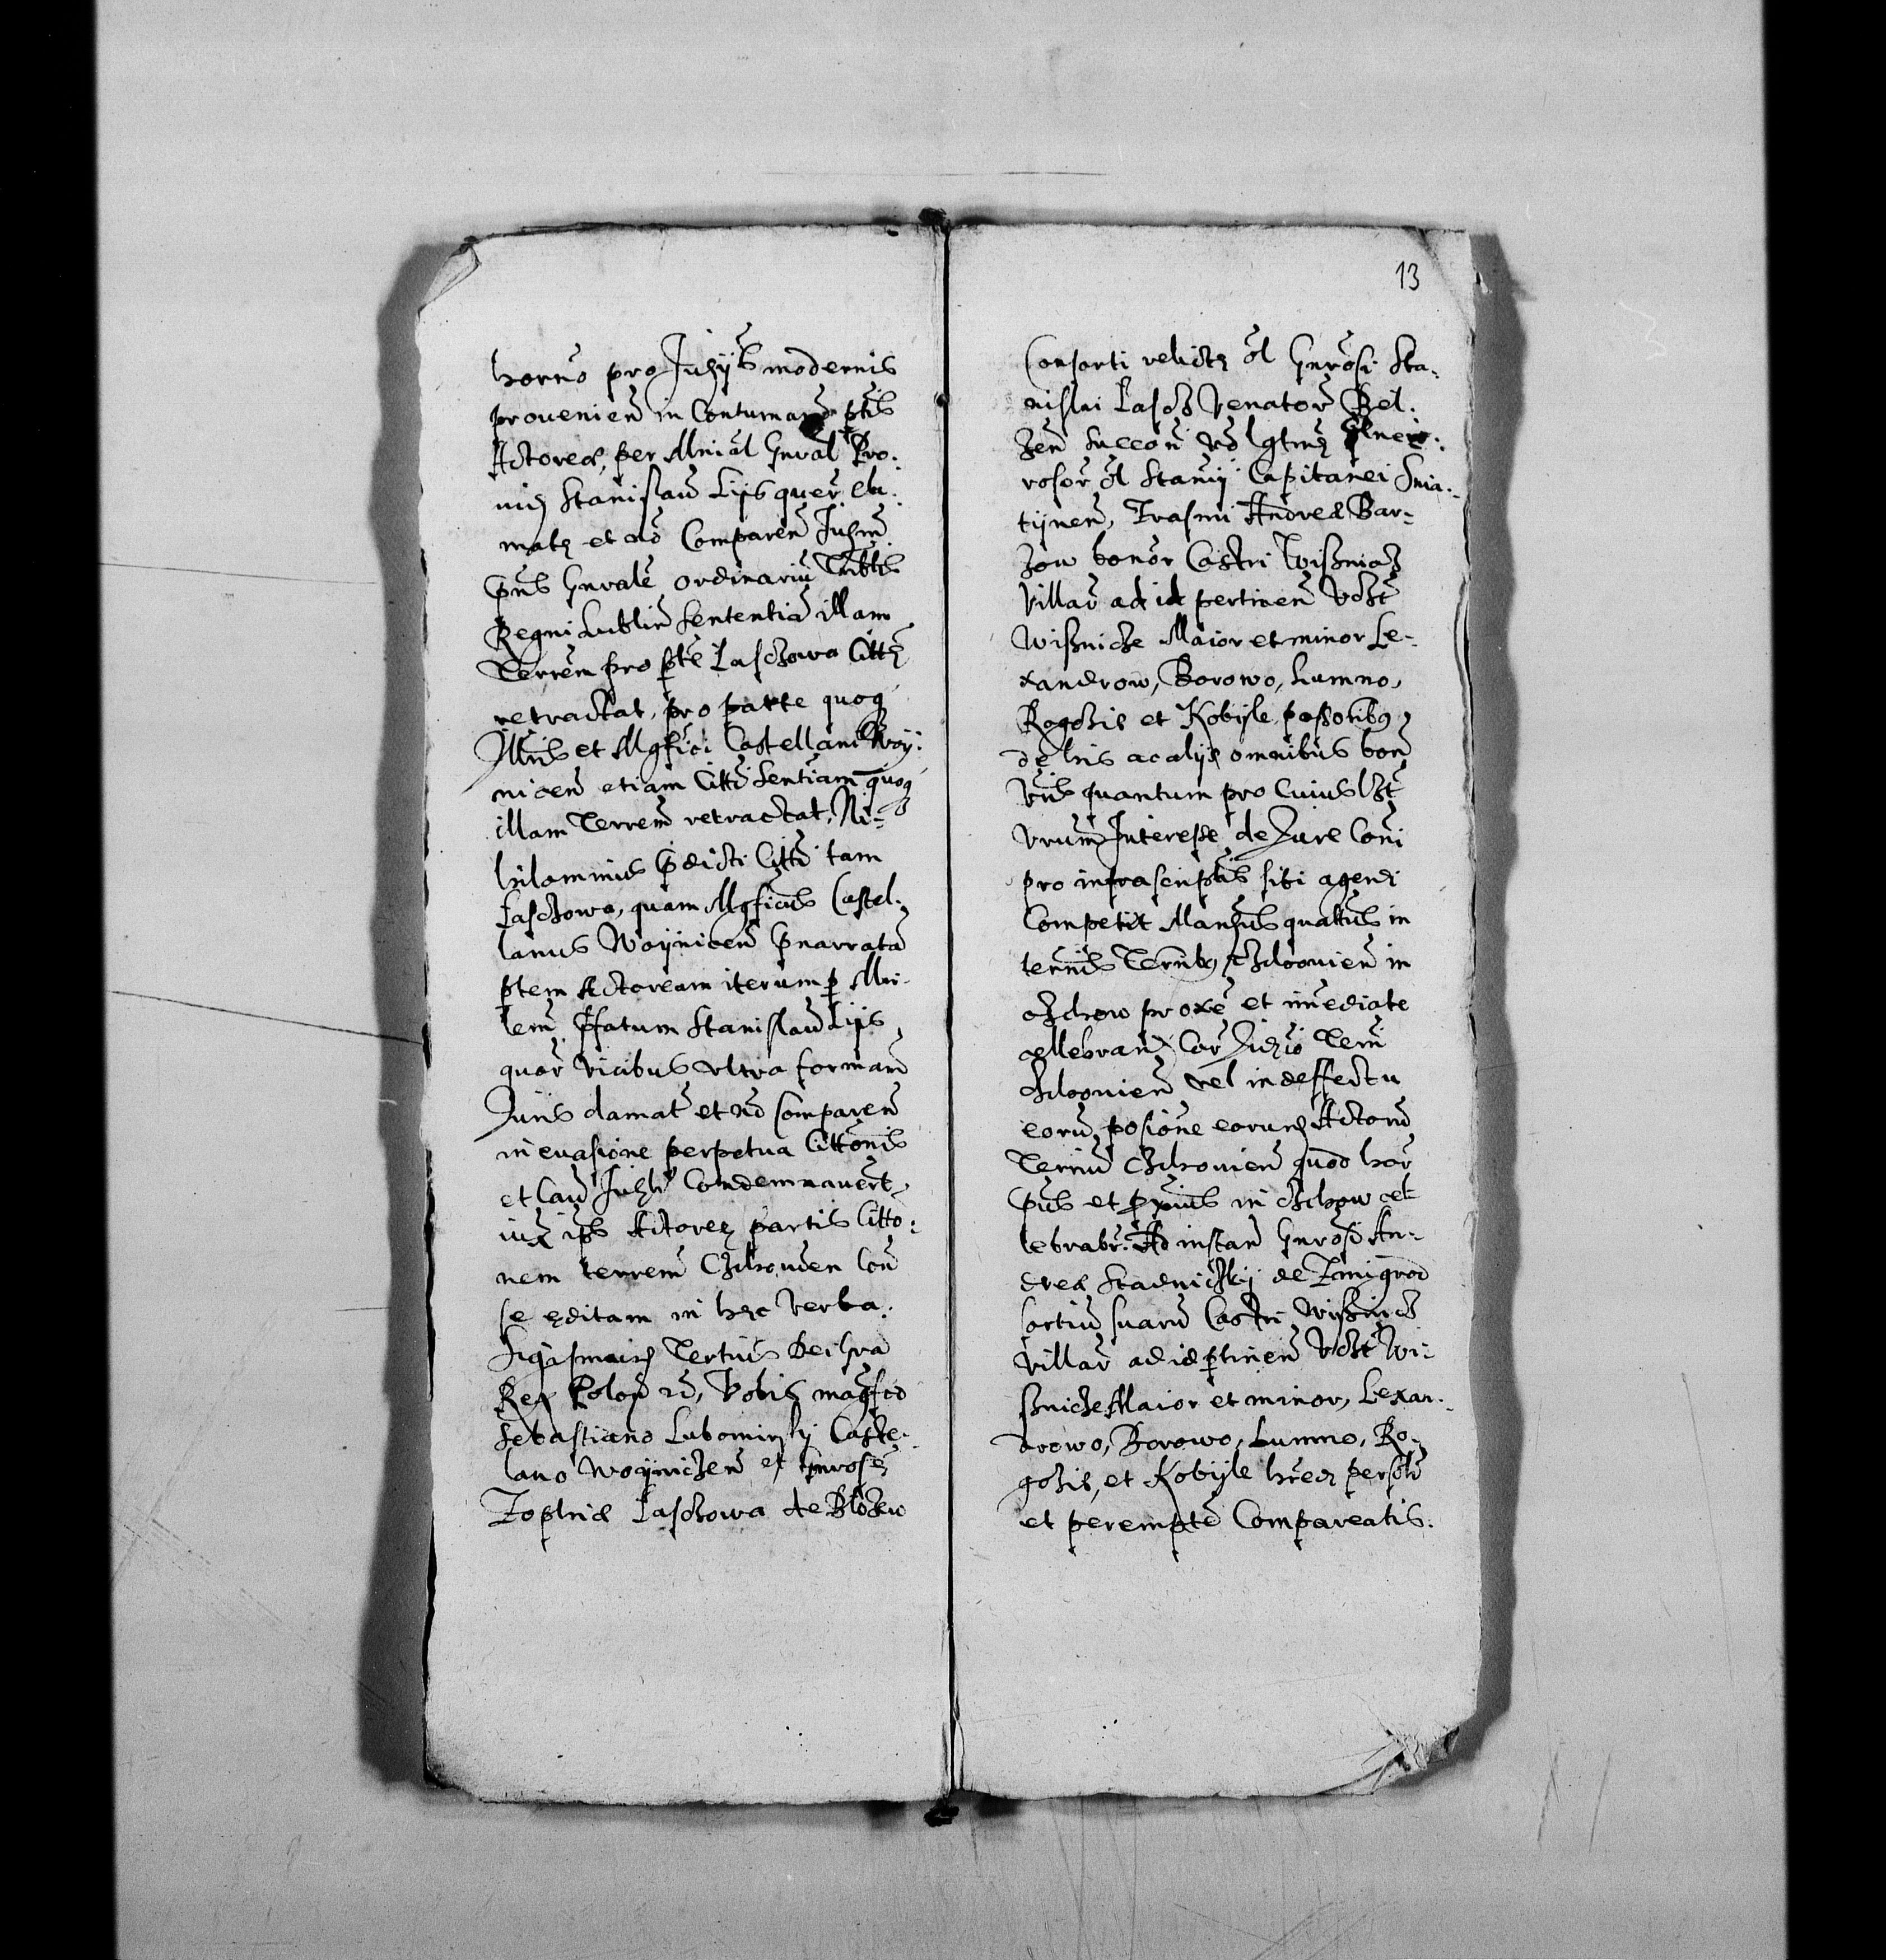 horno pro Judijs modernis
prouenien in Contumaciam ptis
Actoreæ, per Mnial Gnral Pro.
Stanislau Lijs quer cla.
mats et nō Comparen Judm
pns Gnrale ordinariu Triblis
Regni Lublin Sententiā illam
Terren pro pte Laschowa Citte
retractat, pro parte quoq
Illris et Mgfici Castellani Woy:
nicen etiam Citti Sentiam quoq
illam Terren retractat, Ni-
hilominus pdicti Citti tam
Laschowa, quam Mgficus Castel.
lanus Woynicen pnarratā
ptem Actoream iterum p Mni-
lem pfatum Stanislau Lijs
quar vicibus ultra formam
Juris clamat et nō comparen
in euasione perpetua Cittonis
et Cau Judli Condemnauert,
iux ips Actoreæ partis Citto:
nem terrem Chelmen Con
se editam in hęc verba.
Sigismund Tertius Dei Gra
Rex Polon rē, Vobis magfco
Sebastiano Lubomirskij Caste.
lano Woynicen et Gnrose
Zophiæ Laschowa de
13
Consorti relictę ol Gnrosi Sta.
nislai Lasch Venator Bel.
zen
rosor ol Stanij Capitanei Snia.
tijnen, Erasmi Andreæ Bar-
zow bonor Castri Wisnicz
Villar ad id pertinen Vdzt
Wisnicze Maior et minor Le-
xandrow, Borowo, Lumno,
Rogozie et Kobyle possoribq
de his ac alijs omnibus bon
Vris quantum pro Cuiuslzt
Vrum Interesse de Jure Coni
pro infrascriptis sibi agendi
Competit Mandmus quattus in
terminis Terribq Czchouien in
Czchow proxe et immediate
cellebran Cor Judicio Terri
Czchouien vel in deffectu
eoru, posione eorund Actoru
Terriu Czchouien quod hor
pus et pxius in Czchow cel
lebrabr. Ad instan Gnrosi An-
dreæ Stadniczkij de Zmigrod
sortiu suaru Castri Wisnicz
villar ad id ptinen Vdzt Wi-
snicze Maior et minor, Lexan.
drowo, Borowo, Lumno, Ro-
gozie, et Kobyle hred persolr
et perempte Compareatis.